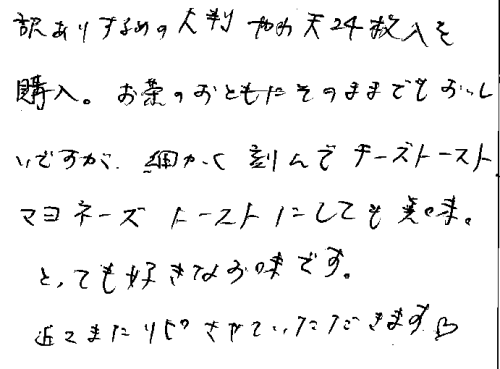 訳ありするめの大判 やわ天24枚入を
購入。お茶のおともにそのままでもおいし
いですが、細かく刻んで チーズトースト、
マヨネーズ トーストにしても美味。
とっても好きなお味です。
近々またリピさせていただきます♡